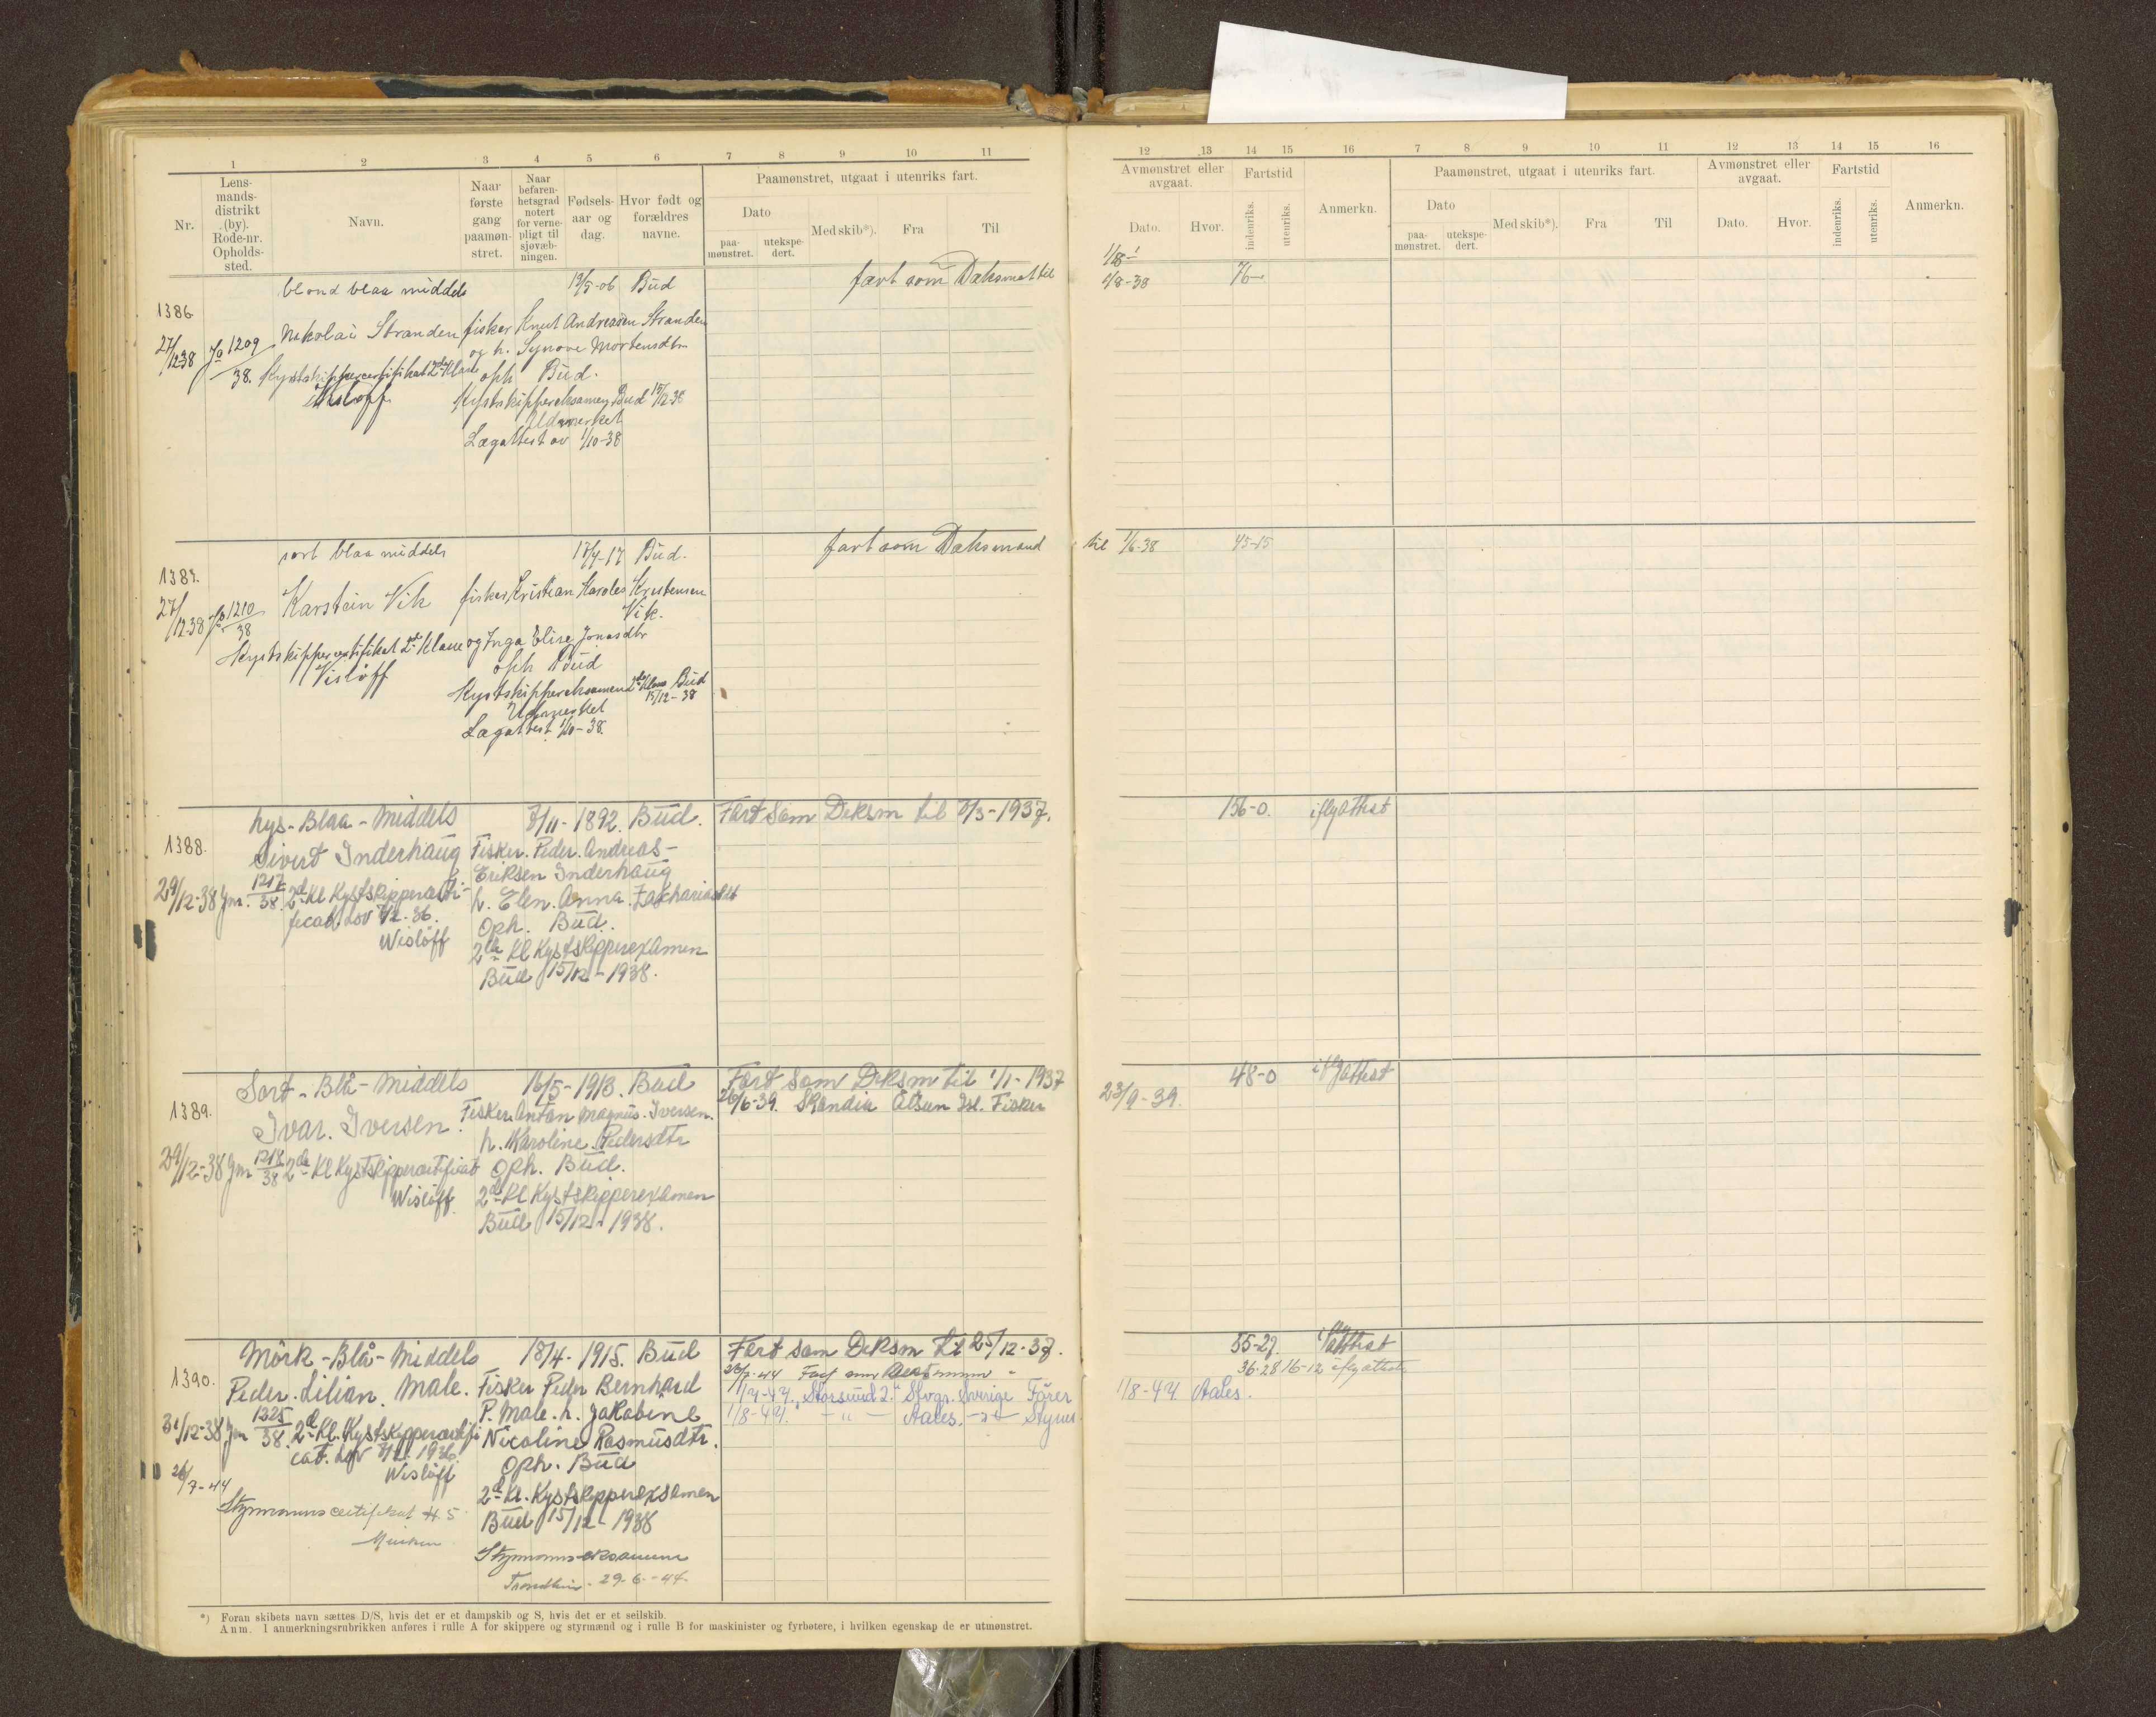 1 2 3 4 5 6 7 8 9 10 11
Nr.
Lens-
mands-
distrikt
(by).
Rode-nr.
Opholds-
sted.
Navn.
Naar
første
gang
paamøn-
stret.
Naar
befaren-
hetsgrad
notert
for verne-
pligt til
sjøvæb-
ningen.
Fødsels-
aar og
dag.
Hvor født og
forældres
navne.
Paamønstret, utgaat i utenriks fart.
Dato
paa-
mønstret.
utekspe-
dert.
Med skib*).
Fra
Til
blond blaa middels 19/5-06 Bud fart som Dæksmat til
1386.
Nikolai Stranden fisker Knut Andreasen Stranden
27/12 38 Ja 1209/38. og h. Synove Mortensdtr
Kystskippercertifikat 2de Klasse oph Bud.
Wisløff Kystskippereksamen Bud 15/12-38
Udmerket
Lægattest av 1/10-38
sort blaa middels 17/4-17 Bud. fart som Dæksmand
1387.
Karstein Vik fisker Kristian Karoles Kristensen
27/12-38 Ja 1210/38 Vik.
Kystskippercertifikat 2de Klasse og Inga Elise Jonasdtr
Visløff oph Bud
Kystskippereksamen 2de Klasse Bud
15/12-38
Udmerket
Lægattest 1/10-38.
Lys-Blaa-Middels 8/11-1892. Bud. Fart Som Deksm til 3/3-1937.
1388.
Sivert Inderhaug Fisker. Peder. Andreas-
Eriksen Inderhaug
29/12-38 Jm. 1217/38. 2de Kl Kystskippercerti- h. Elen. Anna. Zakariasdtr
ficat. Lov 7/2-36. Oph. Bud.
Wisløff 2de Kl Kystskipperexamen
Bud 15/12-1938.
Sort-Blå-Middels 16/5-1913. Bud Fart Som Deksm til 1/1-1937
1389. 26/6-39. Skandia Ålsun Isl. Fisker
Ivar. Iversen. Fisker. Anton Magnus. Iversen.
h. Karoline Pedersdtr
29/12-38 Jm 1218/38 2de Kl Kystskippercertificat Oph. Bud.
Wisløff. 2de Kl Kystskipperexamen
Bud 15/12-1938.
Mørk-Blå-Middels 18/4-1915. Bud Fart som Deksm til 25/12-37.
1390. 26/7-44 Fart som
Peder. Lilian. Male. Fisker Peder Bernhard 1/4-44. "Storsund 2." Stvgr. Sverige Fører
P. Male. h. Jakobine 1/8-44. - " - Aales. - " - Styrm.
31/12-38 Jm 1225/38. 2de Kl. Kystskippercertifi- Nicoline Rasmusdtr.
cat. Lov 7/2 1936. Oph. Bud
Wisløff
26/7-44 2de Kl. Kystskipperexamen
Styrmannscertifikat H 5 Bud 15/12-1938
Styrmanns-eksamen
Trondheim. 29-6-44.
*) Foran skibets navn sættes D/S, hvis det er et dampskib og S, hvis det er et seilskib.
Anm. I anmerkningsrubrikken anføres i rulle A for skippere og styrmænd og i rulle B for maskinister og fyrbøtere, i hvilken egenskap de er utmønstret.
12 13 14 15 16 7 8 9 10 11 12 13 14 15 16
Avmønstret eller
avgaat.
Fartstid
Dato.
Hvor.
indenriks.
utenriks.
Anmerkn.
Paamønstret, utgaat i utenriks fart.
Dato
paa-
mønstret.
utekspe-
dert.
Med skib*).
Fra
Til
Avmønstret eller
avgaat.
Dato.
Hvor.
Fartstid
indenriks.
utenriks.
Anmerkn.
1/8-38 76-
til 1/6-38 45-15
156-0. iflg attest
48-0 iflg attest
23/9-39.
55-27. iflg attest
36-28 16-12 iflg attest
1/8-44 Aales.